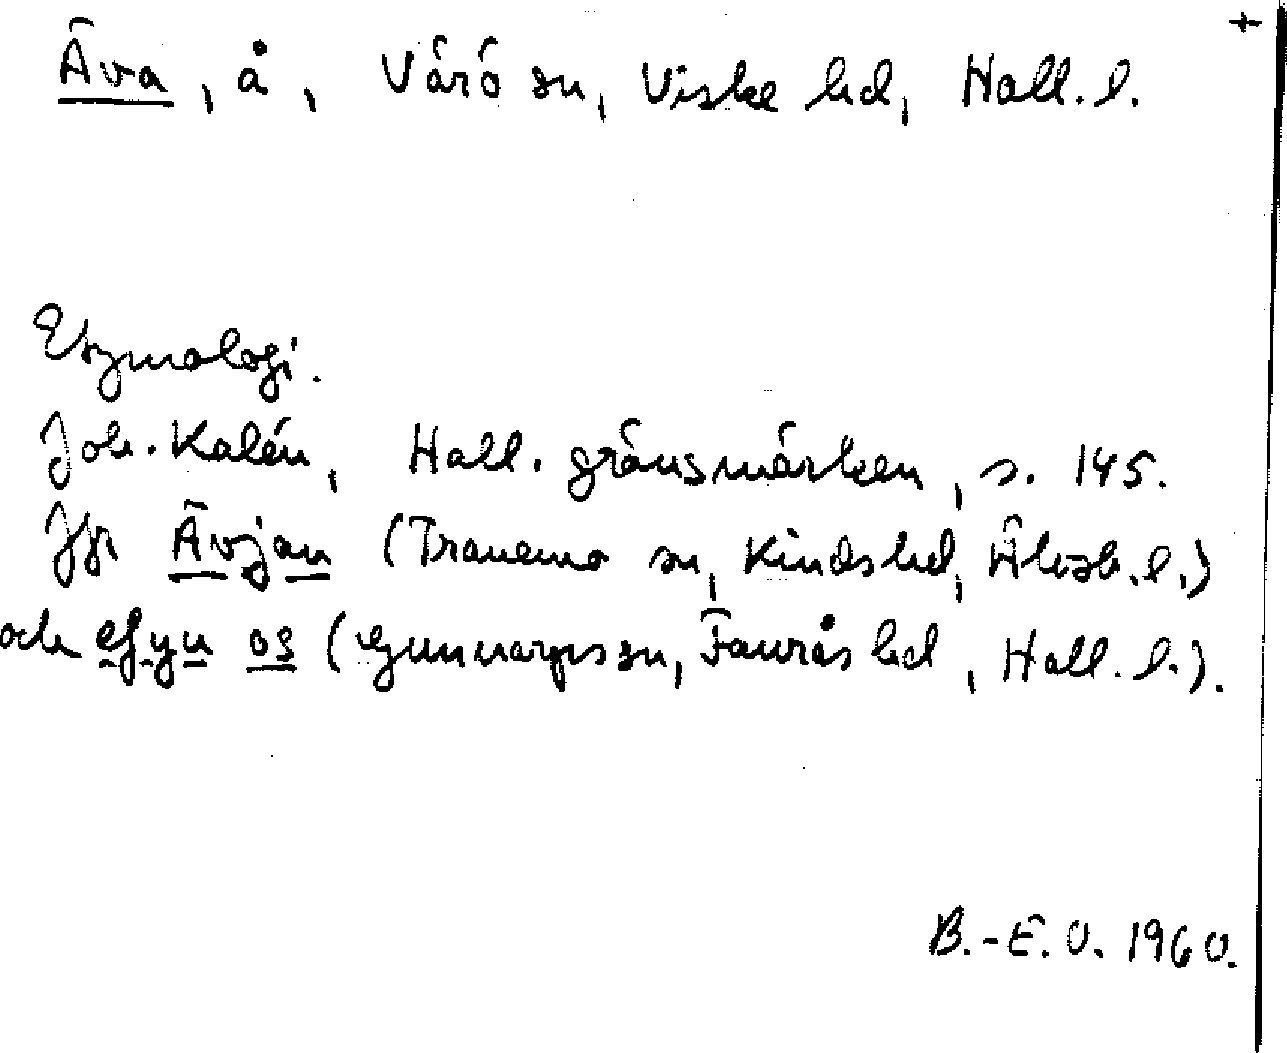 +
Äva, å, Värö sn, Viske hd, Hall. l.
Etymologi.
Joh. Kalén, Hall. gränsmärken, s. 145.
Jfr Ävjan (Tranemo sn, Kinds hd, Älvsb. l.)
och efyu os (Gunnarps sn, Faurås hd, Hall. l.).
B.-E. O. 1960.